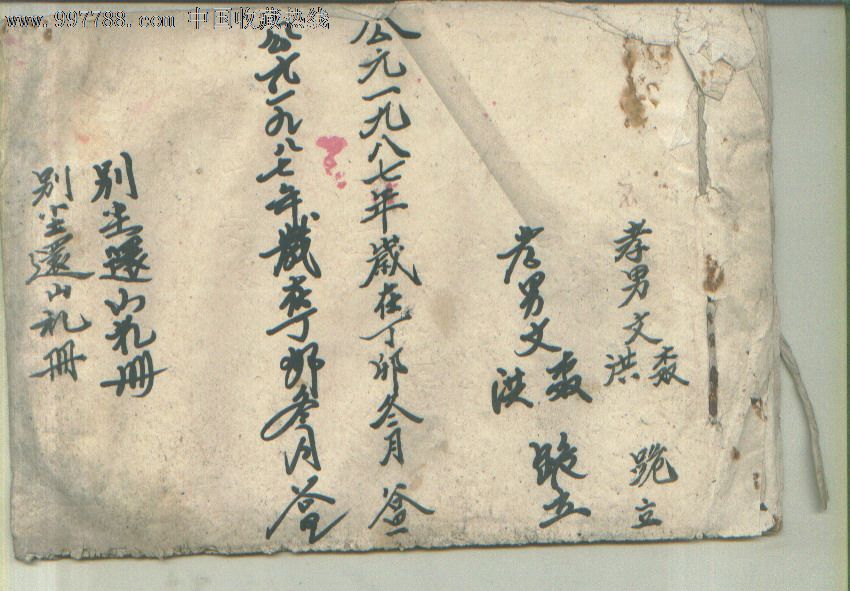 www.997788.com 中国收藏热线
孝男文
洪
跪立
孝男文
洪
跪立
公元一九八七年歲在丁卯叁月
公元一九八七年歲在丁卯叁月
別尘還山礼冊
別尘還山礼冊